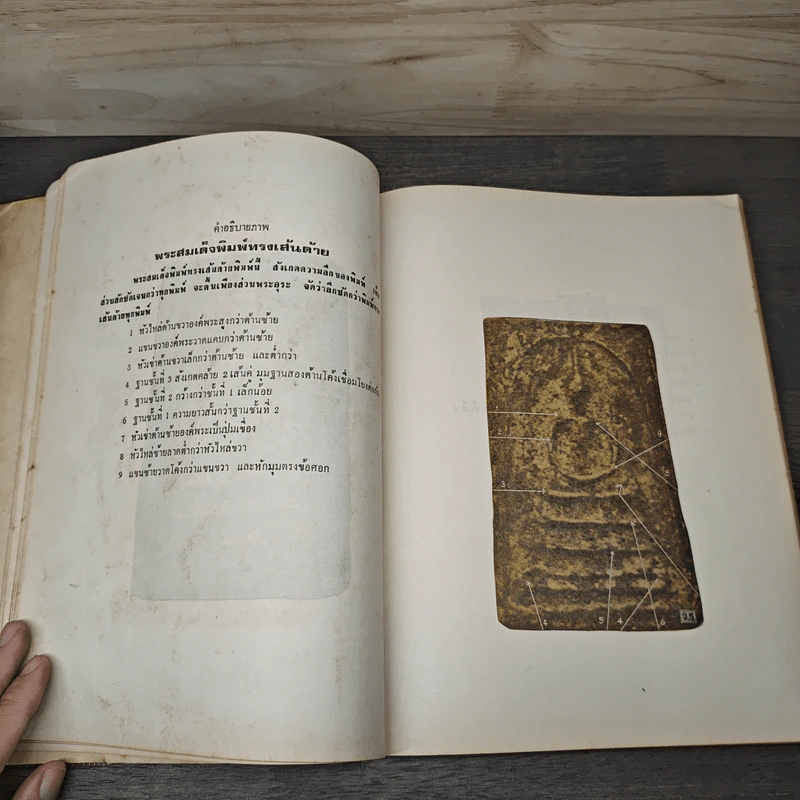 คำอธิบายภาพ
พระสมเด็จพิมพ์ทรงเส้นด้าย
พระสมเด็จพิมพ์ทรงเส้นด้ายพิมพ์นี้ สังเกตความลึกของพิมพ์
ส่วนลึกชัดเจนกว่าทุกพิมพ์ จะตื้นเพียงส่วนพระอุระ จัดว่าลึกชัดกว่าพิมพ์
เส้นด้ายทุกพิมพ์
1 หัวไหล่ด้านขวาองค์พระสูงกว่าด้านซ้าย
2 แขนขวาองค์พระวาดแคบกว่าด้านซ้าย
3 หัวเข่าด้านขวาเล็กกว่าด้านซ้าย และต่ำกว่า
4 ฐานชั้นที่ 3 สังเกตคล้าย 2 เส้นคู่ มุมฐานสองด้านโค้งเชื่อมโยง
5 ฐานชั้นที่ 2 กว้างกว่าชั้นที่ 1 เล็กน้อย
6 ฐานชั้นที่ 1 ความยาวสั้นกว่าฐานชั้นที่ 2
7 หัวเข่าด้านซ้ายองค์พระเป็นปุ่มเขื่อง
8 หัวไหล่ซ้ายลาดต่ำกว่าหัวไหล่ขวา
9 แขนซ้ายวาดโค้งกว่าแขนขวา และหักมุมตรงข้อศอก
1
2
9
8
3
7
4 5 4 6